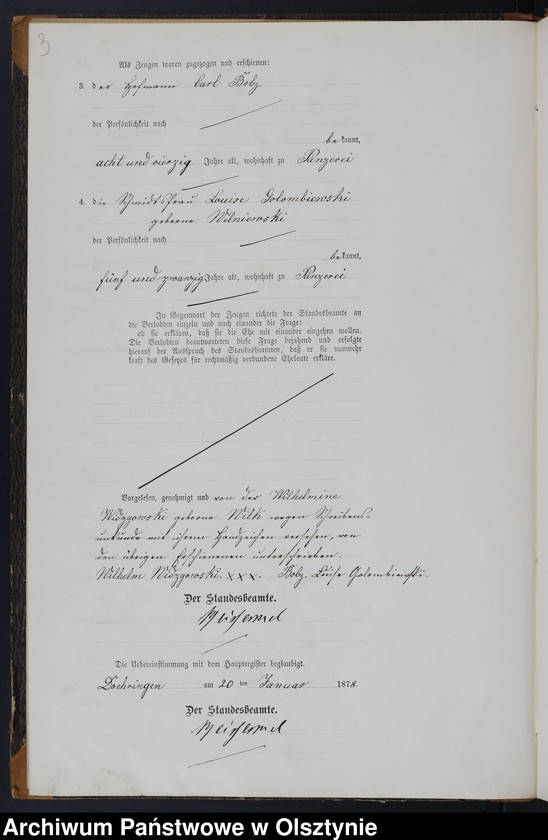 3
Als Zeugen waren zugezogen und erschienen:
3. der Hofmann Carl Bobz
der Persönlichkeit nach
bekannt,
acht und vierzig Jahre alt, wohnhaft zu Panzerei
4. die Schmidtsfrau Louise Golombiewski
geborne Wilniewski
der Persönlichkeit nach
bekannt,
fünf und zwanzig Jahre alt, wohnhaft zu Panzerei
In Gegenwart der Zeugen richtete der Standesbeamte an
die Verlobten einzeln und nach einander die Frage:
ob sie erklären, daß sie die Ehe mit einander eingehen wollen.
Die Verlobten beantworteten diese Frage bejahend und erfolgte
hierauf der Ausspruch des Standesbeamten, daß er sie nunmehr
kraft des Gesetzes für rechtmäßig verbundene Eheleute erkläre.
Vorgelesen, genehmigt und von der Wilhelmine
Widzgowski geborne Wilk wegen Schreibens-
unkunde mit ihrem Handzeichen versehen, von
den übrigen Erschienenen unterschrieben.
Wilhelm Widzgowski. XXX. Bobz. Luise Golombiewski.
Der Standesbeamte.
Die Uebereinstimmung mit dem Hauptregister beglaubigt.
Doehringen am 20 ten Januar 1878.
Der Standesbeamte.
Archiwum Państwowe w Olsztynie